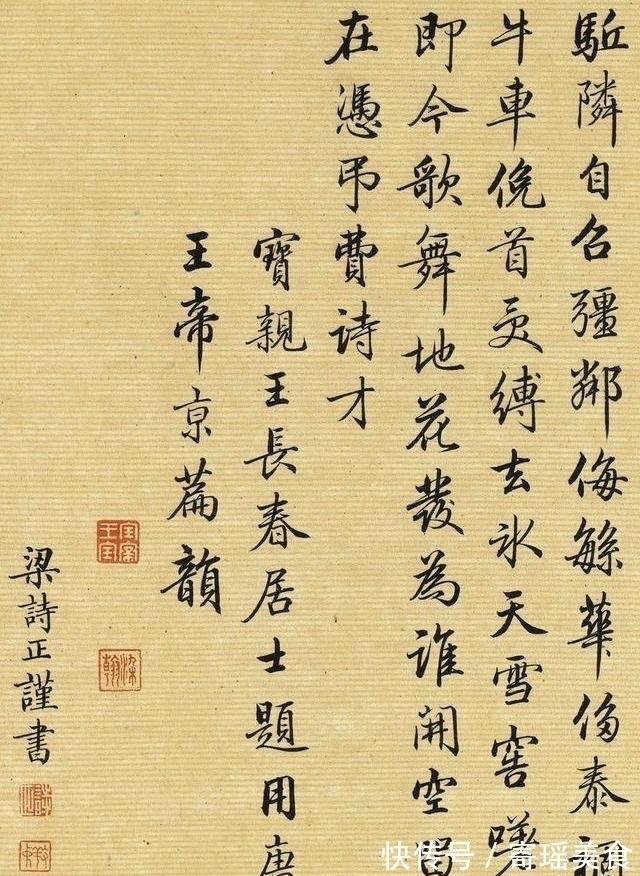 隣自召彊鄰侮緐華侈泰
牛車俛首受縛去氷天雪窖嘆
即今歌舞地花發為誰開空留
在憑弔費詩才
寶親王長春居士題用唐
王帝京篇韻
梁詩正謹書
快传号/寄瑶美食